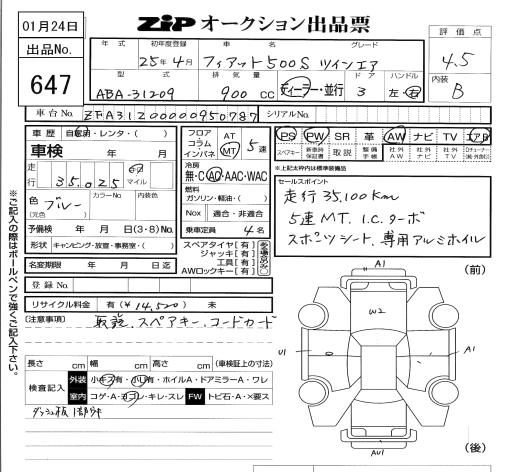 01月24日
ZiP オークション出品票
出品No.
647
年式 初年度登録 車名 グレード
25年4月 フィアット500S ツインエア
型式 排気量 ドア ハンドル
ABA-31209 900 CC ディーラー・並行 3 左・右
評価点
4.5
内装
B
車台No. ZFA31200000950787 シリアルNo.
車歴 自家用・レンタ・( )
車検 年 月
走行 35,025 km マイル
色 ブルー (元色) カラーNo. 内装色
予備検 年 月 日(3・8)No.
形状 キャンピング・放宣・事務室・( )
名変期限 年 月 日迄
登録No.
リサイクル料金 有(¥14,520) 未
フロア コラム インパネ AT MT 5速
冷房 無・C・AC・AAC・WAC
燃料 ガソリン・軽油・( )
Nox 適合・非適合
乗車定員 4名
スペアタイヤ[有]
ジャッキ[有]
工具[有]
AWロックキー[有]
PS PW SR 革 AW ナビ TV エアB
スペアキー 新車時保証書 取説 整備手帳 社外AW 社外ナビ 社外TV
*上記太枠内は標準装備品
セールスポイント
走行35,100Km
5速MT. I.C.ターボ
スポーツシート. 専用アルミホイル
注意事項
取説. スペアキー. コードカード
長さ cm 幅 cm 高さ cm (車検証上の寸法)
検査記入 外装 小キズ有・小凹有・ホイルA・ドアミラーA・ワレ
室内 コゲ・A・ヨゴレ・キレ・スレ FW トビ石・A・×要ス
※ご記入の際はボールペンで強くご記入下さい。
(前)
A1
W2
U1
A1
AU1
(後)